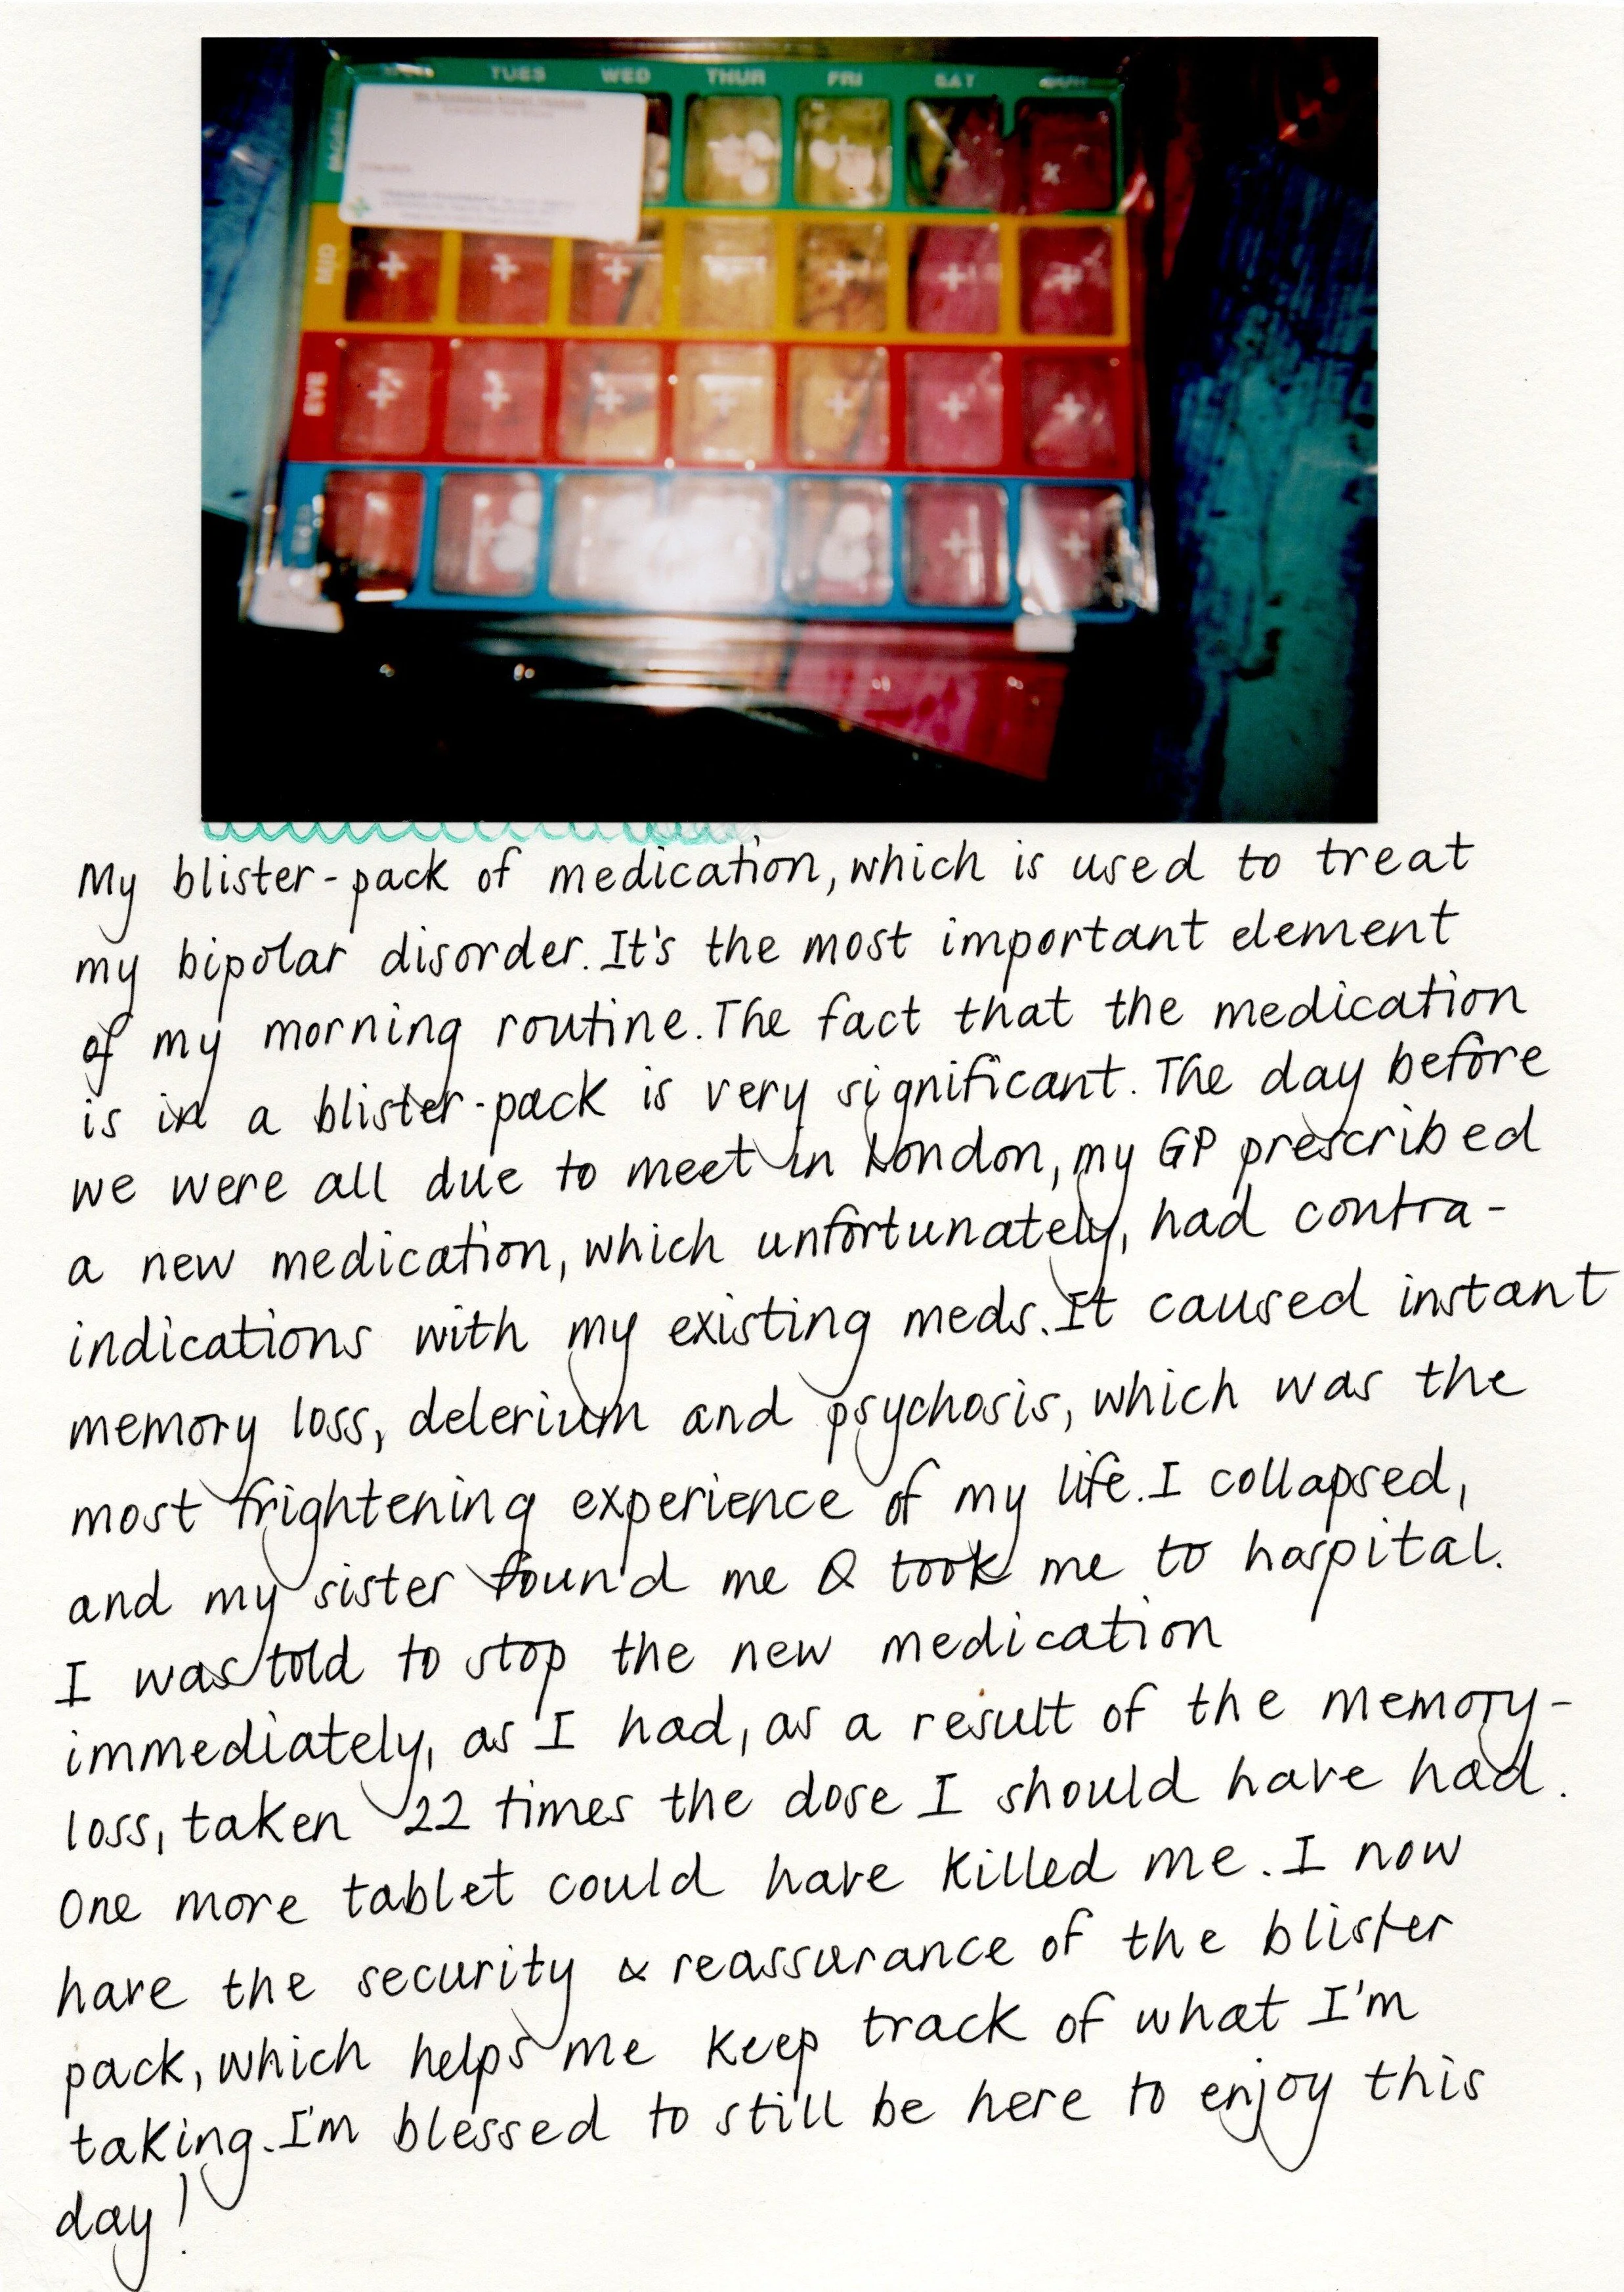 TUES WED THUR FRI SAT SUN
MID
EVE
BED
My blister-pack of medication, which is used to treat
my bipolar disorder. It's the most important element
of my morning routine. The fact that the medication
is in a blister-pack is very significant. The day before
we were all due to meet in London, my GP prescribed
a new medication, which unfortunately, had contra-
indications with my existing meds. It caused instant
memory loss, delerium and psychosis, which was the
most frightening experience of my life. I collapsed,
and my sister found me & took me to hospital.
I was told to stop the new medication
immediately, as I had, as a result of the memory-
loss, taken 22 times the dose I should have had.
One more tablet could have killed me. I now
have the security & reassurance of the blister
pack, which helps me keep track of what I'm
taking. I'm blessed to still be here to enjoy this
day!